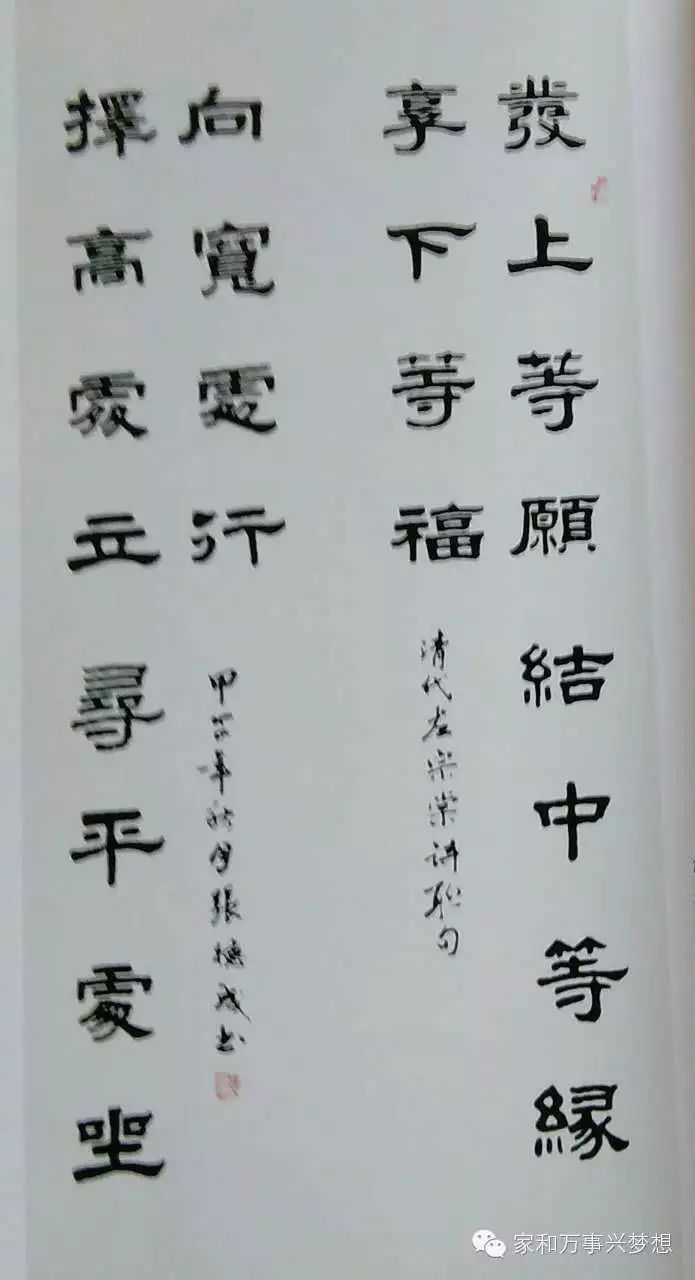 發上等願結中等緣
享下等福
清代左宗棠诗联句
擇高處立尋平處坐
向寬處行
甲午年秋月張德成书
家和万事兴梦想